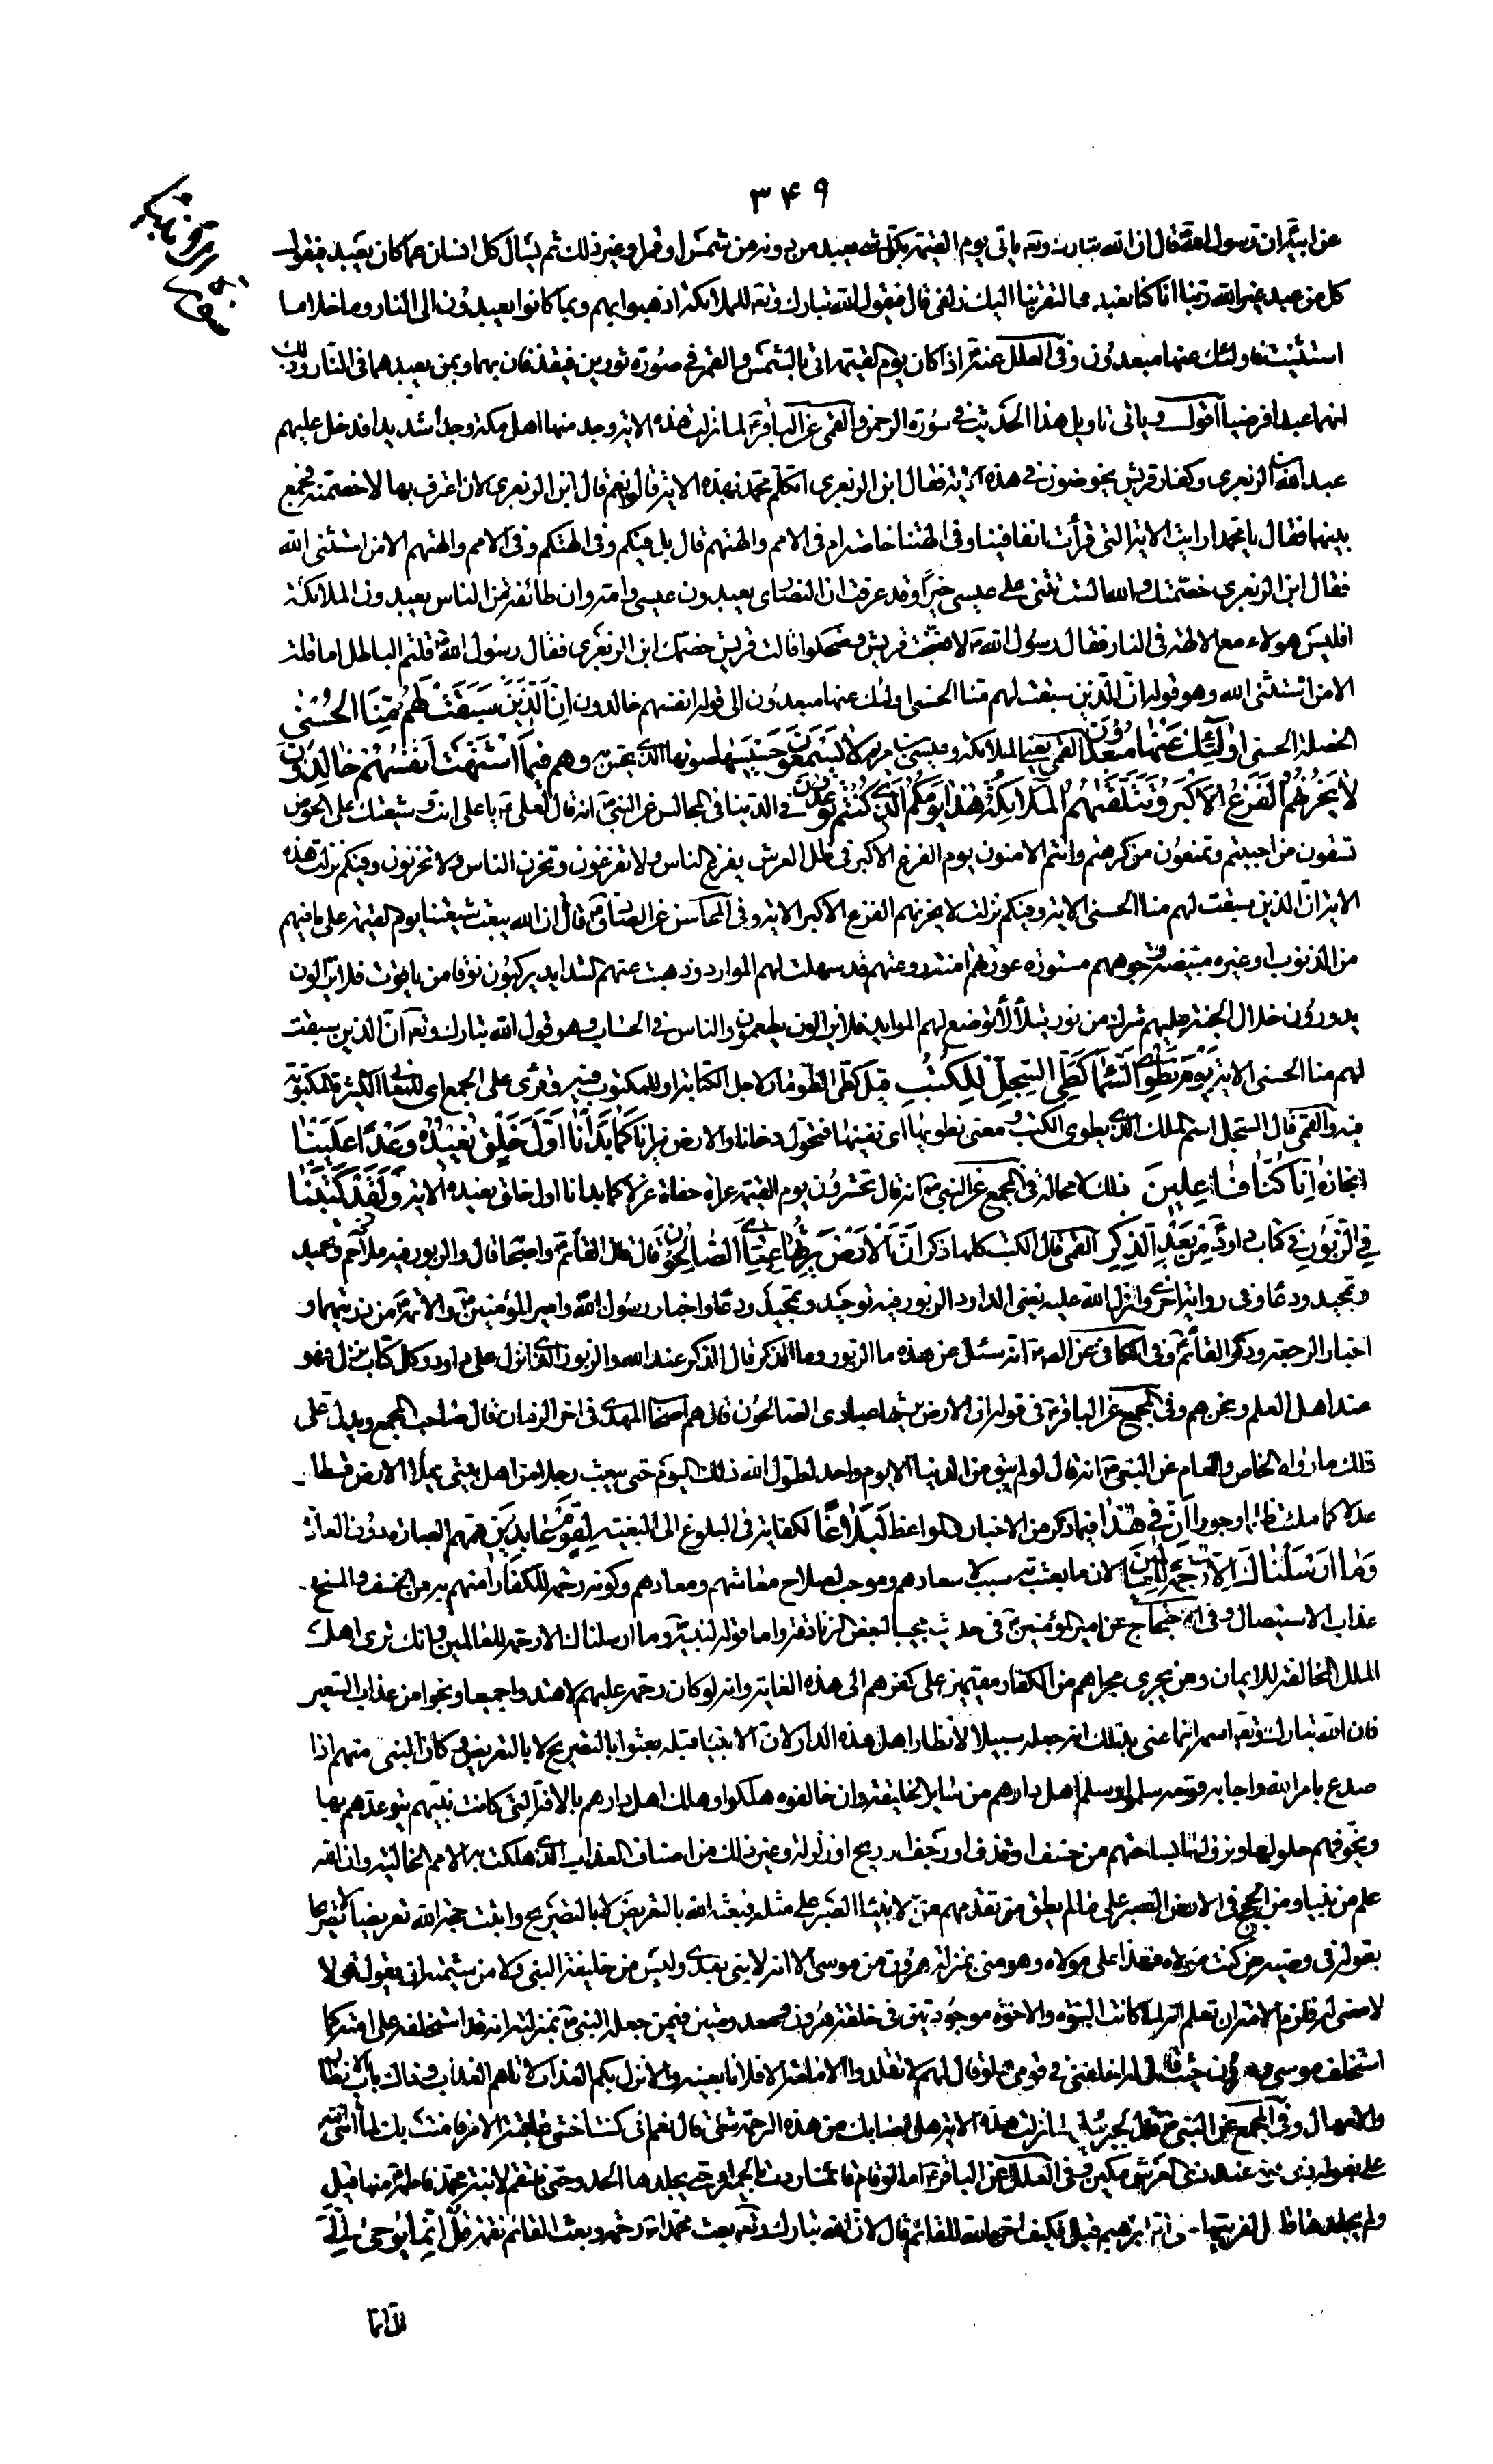 ۳۴۹
عن ابيه ان رسول الله قال ان الله تبارك وتعه ياتى يوم القيمة بكل شئ يعبد من دونه من شمس او قمر او غير ذلك ثم يسأل كل انسان عما كان يعبد فيقول
كل من عبد غير الله ربنا انا كنا نعبد ها لتقربنا اليك زلفى قال فيقول الله تبارك وتعه للملائكة اذهبوا بهم وبما كانوا يعبدون الى النار وما خلا ما
استثنيت فاولئك عنها مبعدون وفى العلل عنه اذا كان يوم القيمة اتى بالشمس والقمر فى صورة ثورين فيقذفان بهما وبمن يعبدهما فى النار وذلك
انهما عبدا فرضيا اقول وياتى تاويل هذا الحديث فى سورة الرحمن والقمى عن الباقر لما نزلت هذه الاية وجد منها اهل مكة وجدا شديدا فدخل عليهم
عبد الله بن الزبعرى وكفار قريش يخوضون فى هذه الاية فقال ابن الزبعرى اتكلم محمد بهذه الاية قالوا نعم قال ابن الزبعرى لان اعترف بها لاخصمنه فجمع
بينهما فقال يا محمد ارايت الاية التى قرأت انفا فينا وفى الهتنا خاصة ام فى الامم والهتهم قال بل فيكم وفى الهتكم وفى الامم والهتهم الا من استثنى الله
فقال ابن الزبعرى خصمتك والله الست تثنى على عيسى خيرا وقد عرفت ان النصارى يعبدون عيسى وامه وان طائفة من الناس يعبدون الملائكة
افليس هولاء مع الالهة فى النار فقال رسول الله لا فضجت قريش وضحكوا قالت قريش خصمك ابن الزبعرى فقال رسول الله قلتم الباطل اما قلت
الا من استثنى الله وهو قوله ان الذين سبقت لهم منا الحسنى اولئك عنها مبعدون الى قوله انفسهم خالدون ان الذين سبقت لهم منا الحسنى
الخصلة الحسنى اولئك عنها مبعدون القمى يعنى الملائكة وعيسى بن مريم لا يسمعون حسيسها صوتها الذى يحس به وهم فيما اشتهت انفسهم خالدون
لا يحزنهم الفزع الاكبر وتتلقيهم الملائكة هذا يومكم الذى كنتم توعدون فى الدنيا فى المجالس عن النبى انه قال لعلى يا على انت وشيعتك على الحوض
تسقون من احببتم وتمنعون من كرهتم وانتم الامنون يوم الفزع الاكبر فى ظل العرش يفزع الناس ولا تفزعون وتحزن الناس ولا تحزنون وفيكم نزلت هذه
الاية ان الذين سبقت لهم منا الحسنى الاية وفيكم نزلت لا يحزنهم الفزع الاكبر الاية وفى المحاسن عن الصادق قال ان الله يبعث شيعتنا يوم القيمة على ما فيهم
من الذنوب او غيره مبيضة وجوههم مستورة عوراتهم امنة روعتهم قد سهلت لهم الموارد وذهبت عنهم الشدايد يركبون نوقا من ياقوت فلا يزالون
يدورون خلال الجنة عليهم شرك من نور يتلألأ توضع لهم الموايد فلا يزالون يطعمون والناس فى الحساب وهو قول الله تبارك وتعه ان الذين سبقت
لهم منا الحسنى الاية يوم نطوى السماء كطى السجل للكتب قيل كطى الطومار لاجل الكتابة او للمكتوب فيه وقرئ على الجمع اى للمعانى الكثيرة المكتوبة
فيه والقمى قال السجل اسم الملك الذى يطوى الكتب ومعنى نطويها اى نفنيها فتحول دخانا والارض نيرانا كما بدأنا اول خلق نعيده وعدا علينا
انجازه انا كنا فاعلين ذلك لا محالة فى المجمع عن النبى انه قال تحشرون يوم القيمة عراة حفاة غرلا كما بدانا اول خلق نعيده الاية ولقد كتبنا
فى الزبور فى كتاب داود من بعد الذكر القمى قال الكتب كلها ذكر ان الارض يرثها عبادى الصالحون قال قال القائم واصحابه قال والزبور فيه ملاحم وتحميد
وتمجيد ودعا وفى رواية اخرى وانزل الله عليه يعنى الداود الزبور فيه توحيد وتمجيد ودعا واخبار رسول الله وامير المؤمنين والائمة من ذريتهما و
اخبار الرجعة وذكر القائم وفى الكافى عن الصه انه سئل عن هذه ما الزبور وما الذكر قال الذكر عند الله والزبور الذى انزل على داود وكل كتاب نزل فهو
عند اهل العلم ونحن هم وفى المجمع عن الباقر فى قوله ان الارض يرثها عبادى الصالحون قال هم اصحاب المهدى فى اخر الزمان قال صاحب المجمع ويدل على
ذلك ما رواه الخاص والعام عن النبى انه قال لو لم يبق من الدنيا الا يوم واحد لطول الله ذلك اليوم حتى يبعث رجلا من اهل بيتى يملأ الارض قسطا
عدلا كما ملئت ظلما وجورا ان فى هذا فيما ذكر من الاخبار والمواعظ لبلاغا لكفاية فى البلوغ الى البغية لقوم عابدين همهم العبادة دون العادة
وما ارسلناك الا رحمة للعالمين لان ما بعثت به سبب لاسعادهم وموجب لصلاح معاشهم ومعادهم وكونه رحمة للكفار امنهم به من الخسف والمسخ و
عذاب الاستيصال وفى الاحتجاج عن امير المؤمنين فى حديث يجيب لبعض الزنادقة واما قوله لنبيه وما ارسلناك الا رحمة للعالمين وانك ترى اهل
الملل المخالفة للايمان ومن يجرى مجراهم من الكفار مقيمين على كفرهم الى هذه الغاية وانه لو كان رحمة عليهم لاهتدوا جميعا ونجوا من عذاب السعير
فان الله تبارك وتعه اسمه انما عنى بذلك انه جعله سبيلا لانظار اهل هذه الدار لان الانبياء قبله بعثوا بالتصريح لا بالتعريض وكان النبى منهم اذا
صدع بامر الله واجابه قومه سلموا وسلم اهل دارهم من ساير الخليقة وان خالفوه هلكوا وهلك اهل دارهم بالافة التى كانت نبيهم يتوعدهم بها
ويخوفهم حلولها ونزولها بساحتهم من خسف او قذف او رجف او ريح او زلزلة وغير ذلك من اصناف العذاب الذى هلكت به الامم الخالية وان الله
علم من نبينا ومن الحجج فى الارض الصبر على ما لم يطق من تقدمهم من الانبياء الصبر على مثله فبعثه الله بالتعريض لا بالتصريح واثبت حجة الله تعريضا لا تصريحا
بقوله فى وصيه من كنت مولاه فهذا على مولاه وهو منى بمنزلة هرون من موسى الا انه لا نبى بعدى وليس من خليقة النبى ولا من شيمته ان يقول قولا
لا معنى له فلزم الامة ان تعلم انه لما كانت النبوة والاخوة موجودتين فى خلقة هرون ومعدومتين فيمن جعله النبى بمنزلته انه قد استخلفه على امته كما
استخلف موسى هرون حيث قال له اخلفنى فى قومى ولو قال لهم لا تقلدوا الامامة الا فلانا بعينه والا نزل بكم العذاب لاتاهم العذاب وزال باب الانظار
والامهال وفى المجمع عن النبى قال لجبرئيل لما نزلت هذه الاية هل اصابك من هذه الرحمة شئ قال نعم انى كنت اخشى عاقبة الامر فامنت بك لما اثنى
على بقوله ذى قوة عند ذى العرش مكين وفى العلل عن الباقر اما لو قام قائمنا ردت الحميراء حتى يجلدها الحد وحتى ينتقم لابنة محمد فاطمة منها قيل
ولم يجلدها قال لفريتها على ام ابرهيم قيل فكيف اخره الله للقائم قال لان الله تبارك وتعه بعث محمدا رحمة وبعث القائم نقمة قل انما يوحى الى
انما